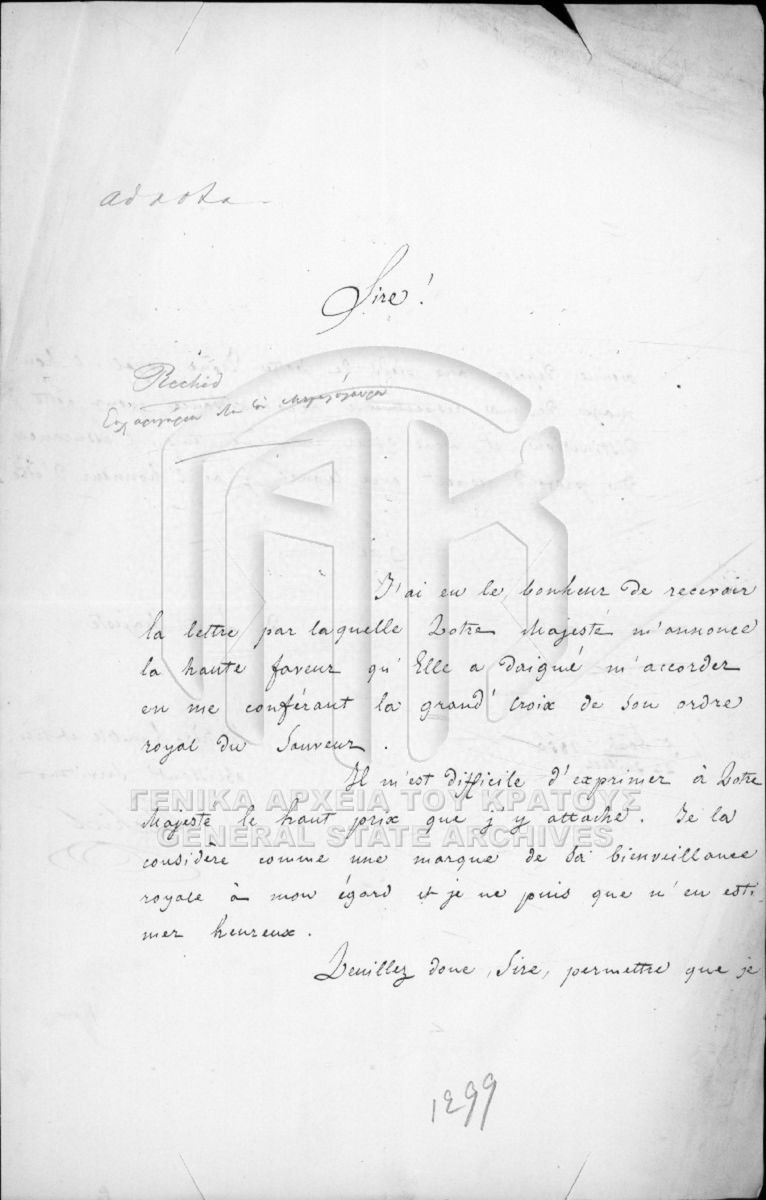 ad acta
Sire!
Rechid
J'ai eu le bonheur de recevoir
la lettre par laquelle Votre Majesté m'annonce
la haute faveur qu'Elle a daigné m'accorder
en me conférant la grand' croix de son ordre
royal du Sauveur.
Il m'est difficile d'exprimer à Votre
Majesté le haut prix que j'y attache. Je la
considère comme une marque de Sa bienveillance
royale à mon égard et je ne puis que m'en esti-
mer heureux.
Veuillez donc, Sire, permettre que je
1299
ΓΑΚ
ΓΕΝΙΚΑ ΑΡΧΕΙΑ ΤΟΥ ΚΡΑΤΟΥΣ
GENERAL STATE ARCHIVES